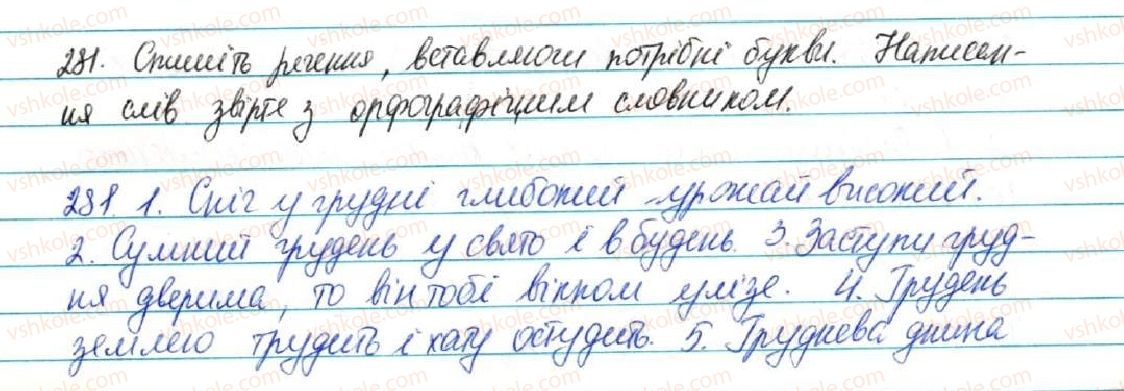 281. Спишіть речення, вставляючи потрібні букви. Написан-
ня слів звірте з орфографічним словником.
281 1. Сніг у грудні глибокий - урожай високий.
2. Сумний грудень у свято і в будень. 3. Заступи груд-
ня дверима, то він тобі вікном улізе. 4. Грудень
землею трудить і хату остудить. 5. Груднева днина